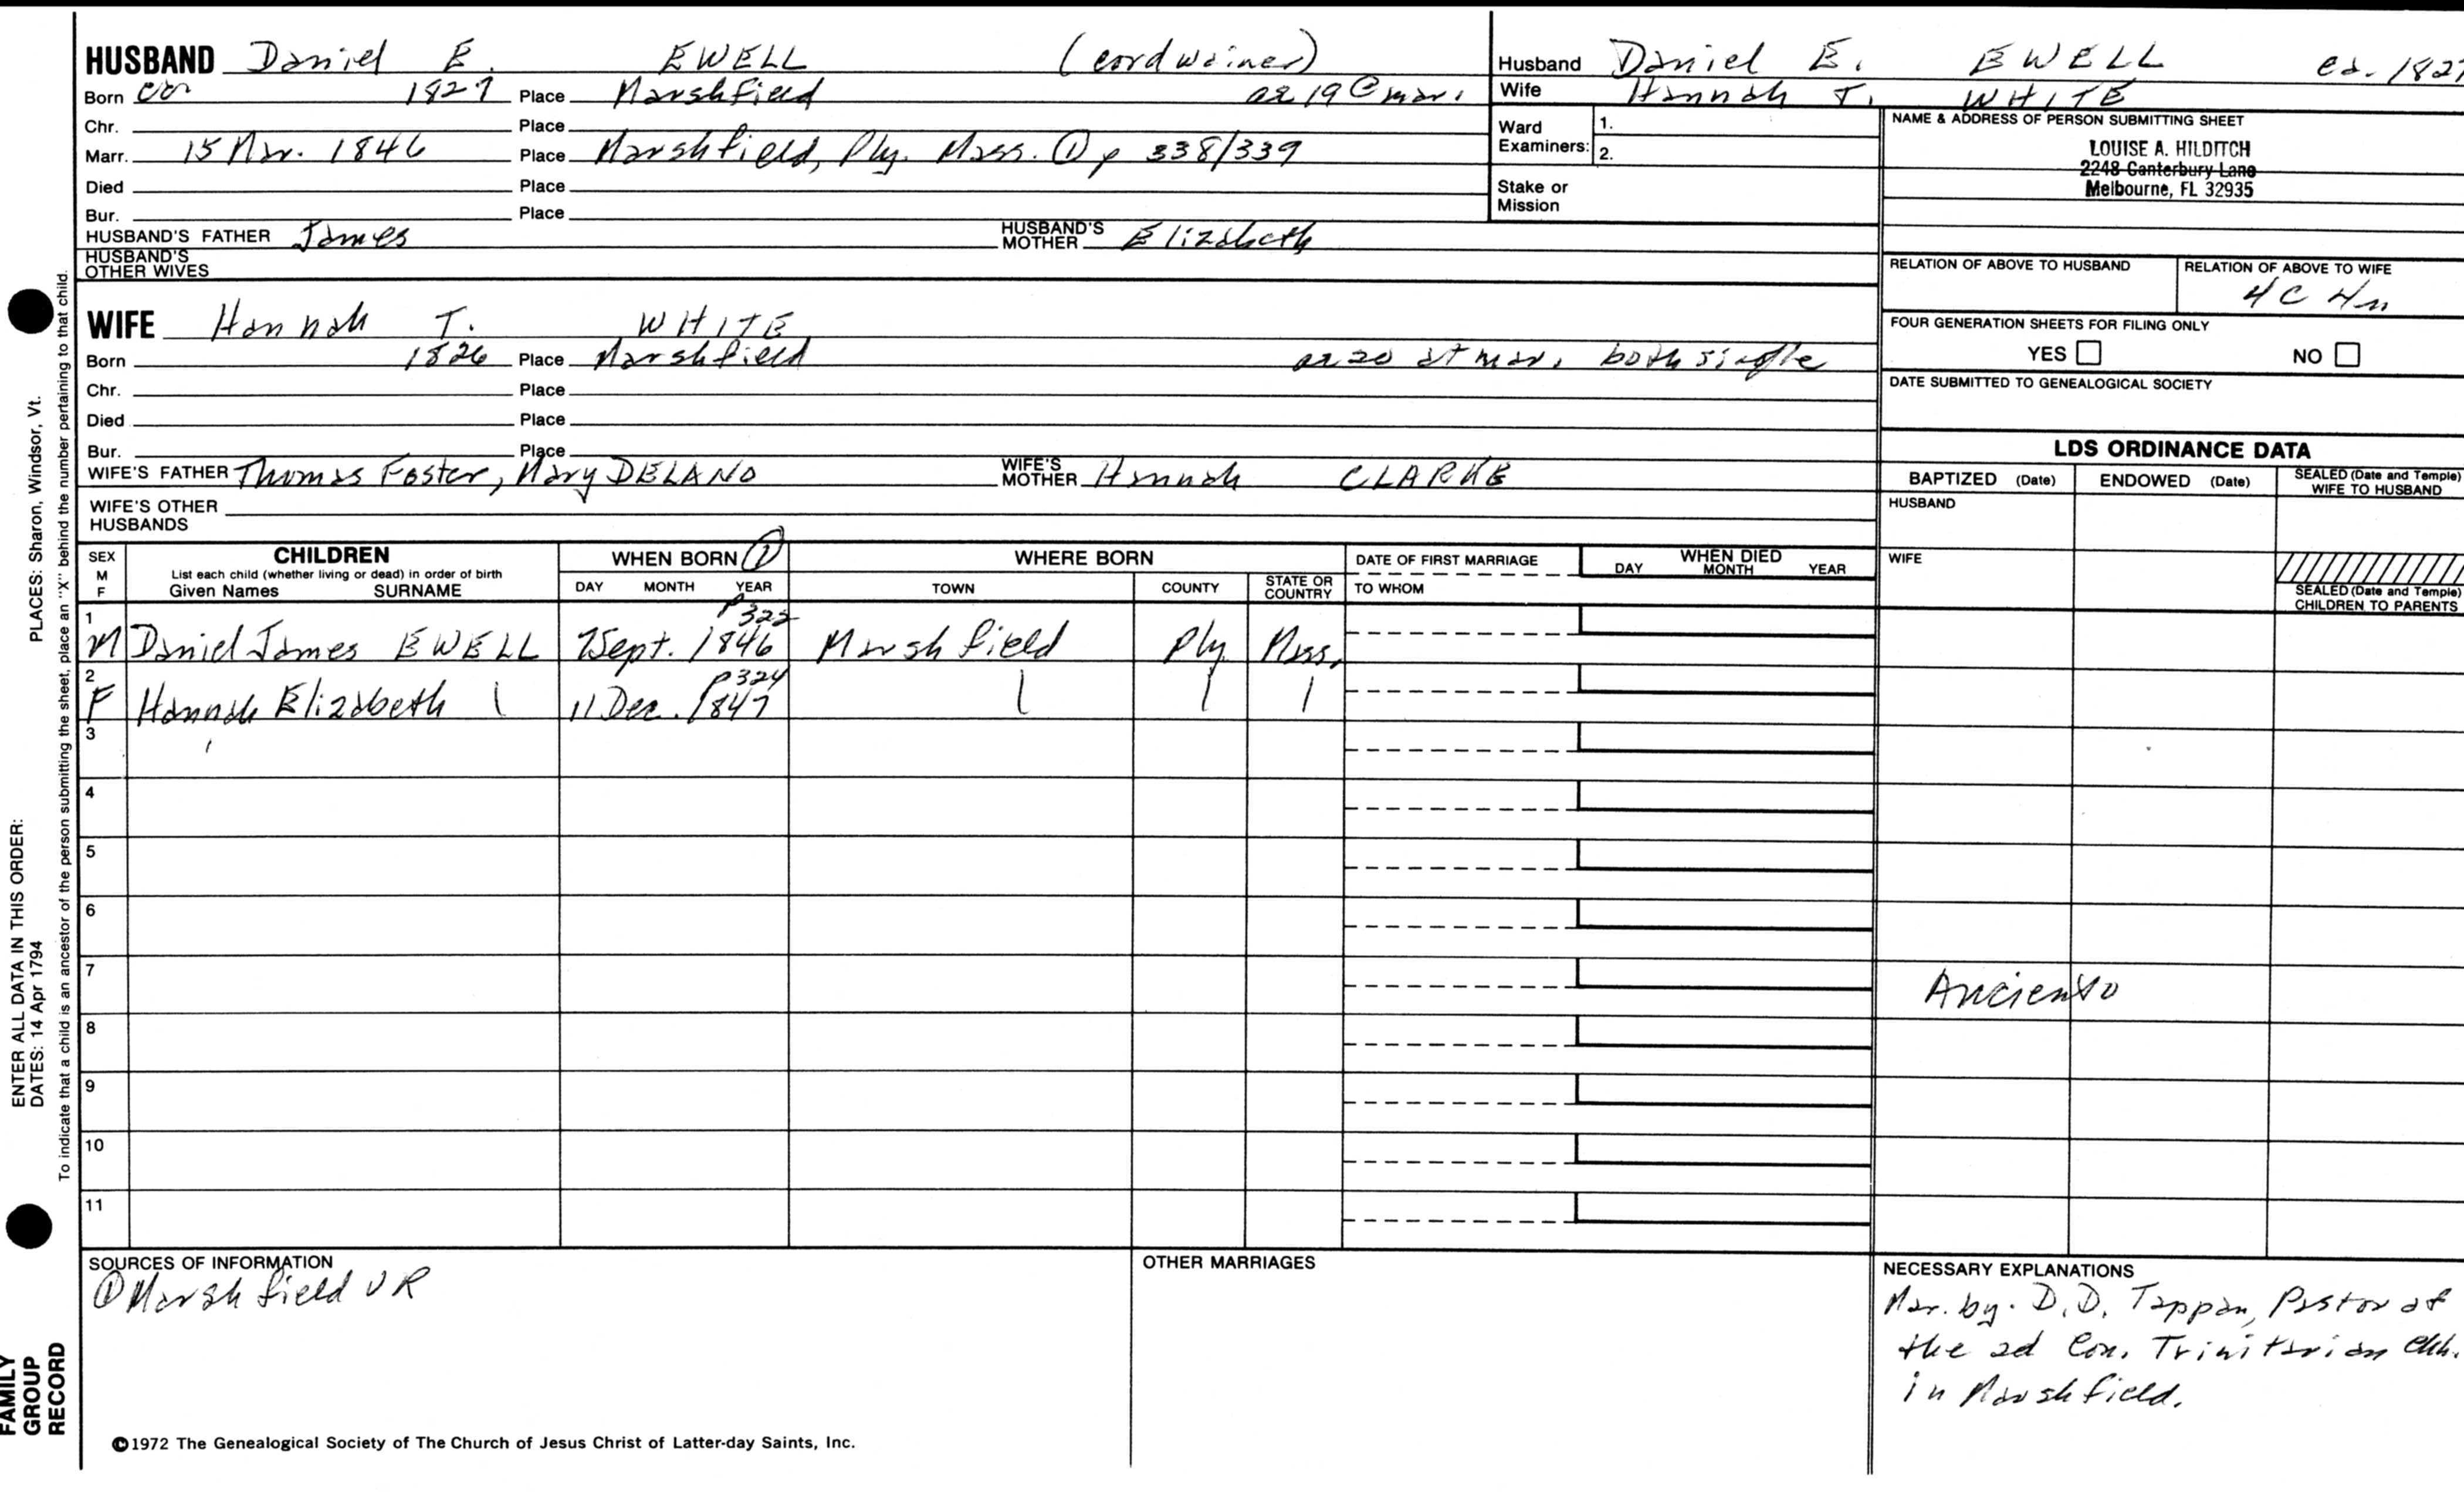 HUSBAND Daniel E. EWELL (cordwainer)
Born ca 1827 Place Marshfield ae 19 @ mar.
Chr. Place
Marr. 15 Mar. 1846 Place Marshfield, Ply. Mass. ① p 338/339
Died Place
Bur. Place
HUSBAND'S FATHER James HUSBAND'S MOTHER Elizabeth
HUSBAND'S OTHER WIVES
Husband Daniel E. EWELL ca. 1827
Wife Hannah T. WHITE
Ward Examiners: 1.
2.
Stake or Mission
NAME & ADDRESS OF PERSON SUBMITTING SHEET
LOUISE A. HILDITCH
2248 Canterbury Lane
Melbourne, FL 32935
RELATION OF ABOVE TO HUSBAND RELATION OF ABOVE TO WIFE
4C 4n
FOUR GENERATION SHEETS FOR FILING ONLY
YES NO
DATE SUBMITTED TO GENEALOGICAL SOCIETY
WIFE Hannah T. WHITE
Born 1826 Place Marshfield ae 20 at mar. both single
Chr. Place
Died Place
Bur. Place
WIFE'S FATHER Thomas Foster, Mary DELANO WIFE'S MOTHER Hannah CLARKE
WIFE'S OTHER HUSBANDS
LDS ORDINANCE DATA
BAPTIZED (Date) ENDOWED (Date) SEALED (Date and Temple) WIFE TO HUSBAND
HUSBAND
WIFE
SEALED (Date and Temple) CHILDREN TO PARENTS
SEX M F CHILDREN WHEN BORN ① WHERE BORN DATE OF FIRST MARRIAGE WHEN DIED
List each child (whether living or dead) in order of birth
Given Names SURNAME DAY MONTH YEAR TOWN COUNTY STATE OR COUNTRY TO WHOM DAY MONTH YEAR
p 322
1 M Daniel James EWELL 7 Sept. 1846 Marshfield Ply Mass.
p 324
2 F Hannah Elizabeth 11 Dec. 1847
3
4
5
6
7
8
9
10
11
SOURCES OF INFORMATION
① Marshfield VR
OTHER MARRIAGES
NECESSARY EXPLANATIONS
Mar. by D.D. Tappan, Pastor of
the 2d Con. Trinitarian Chh.
in Marshfield.
©1972 The Genealogical Society of The Church of Jesus Christ of Latter-day Saints, Inc.
FAMILY GROUP RECORD
ENTER ALL DATA IN THIS ORDER:
DATES: 14 Apr 1794 PLACES: Sharon, Windsor, Vt.
To indicate that a child is an ancestor of the person submitting the sheet, place an "X" behind the number pertaining to that child.